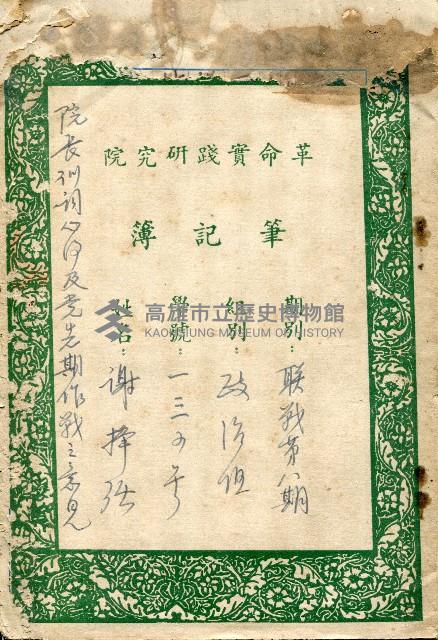 革命實踐研究院
筆記簿
期別：联战第八期
組別：政治组
學號：一三四号
姓名：謝挣强
院長训詞心得及党先期作戰之意見
高雄市立歷史博物館
KAOHSIUNG MUSEUM OF HISTORY